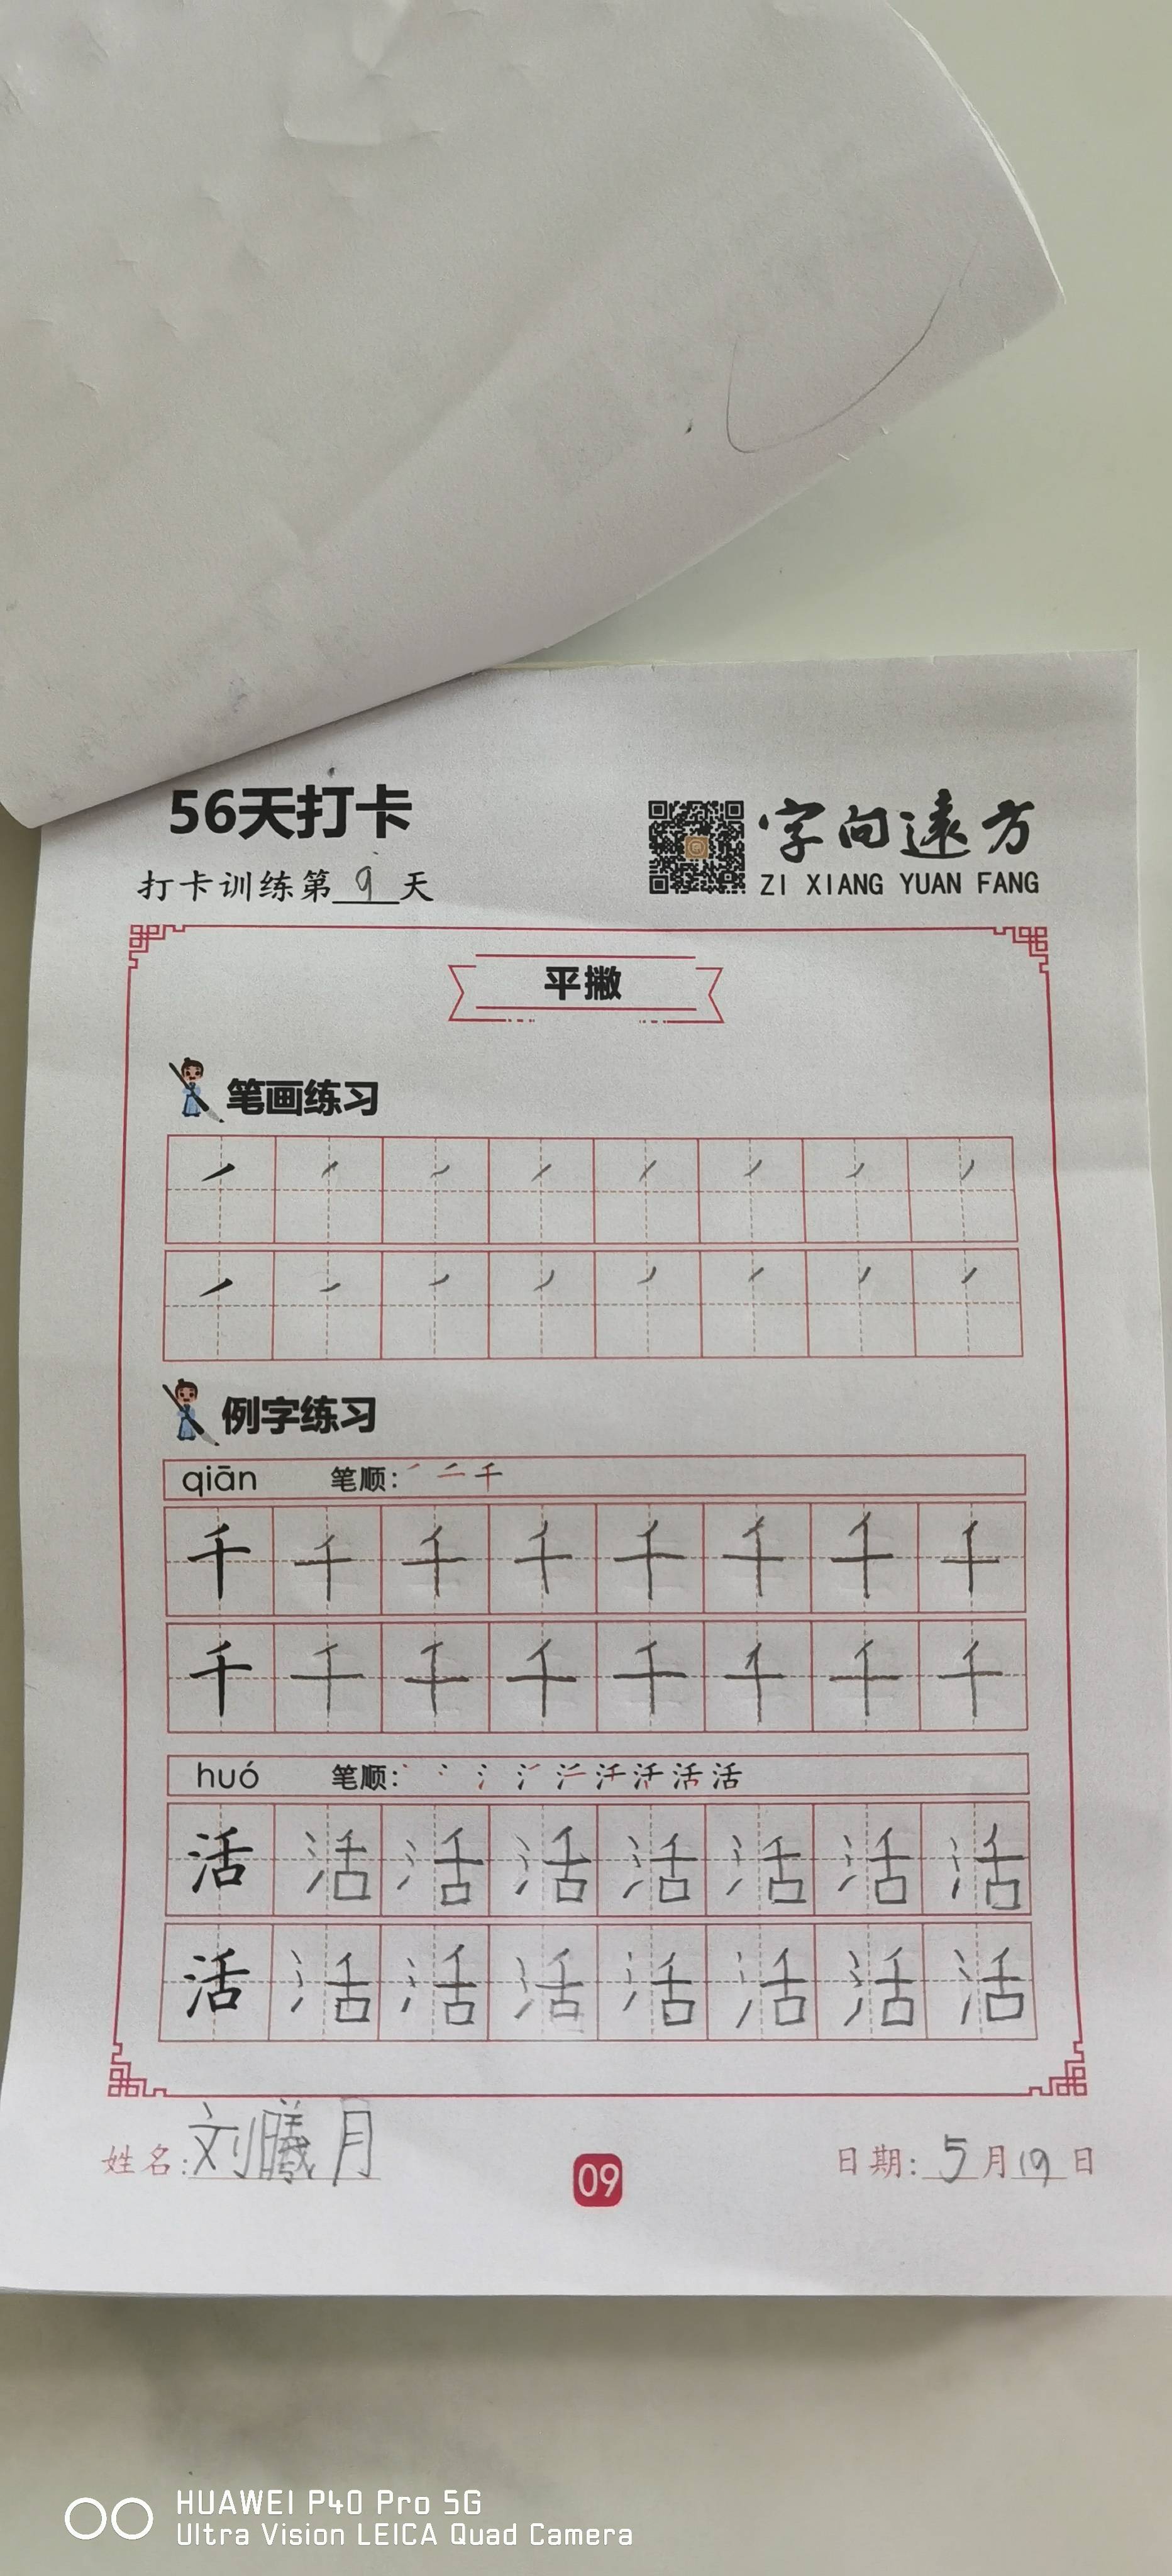 56天打卡
打卡训练第9天
字向遠方
ZI XIANG YUAN FANG
平撇
笔画练习
例字练习
qiān 笔顺: 千
千 千 千 千 千 千 千 千
千 千 千 千 千 千 千 千
huó 笔顺: 活
活 活 活 活 活 活 活 活
活 活 活 活 活 活 活 活
姓名:刘曦月
09
日期:5月19日
HUAWEI P40 Pro 5G
Ultra Vision LEICA Quad Camera